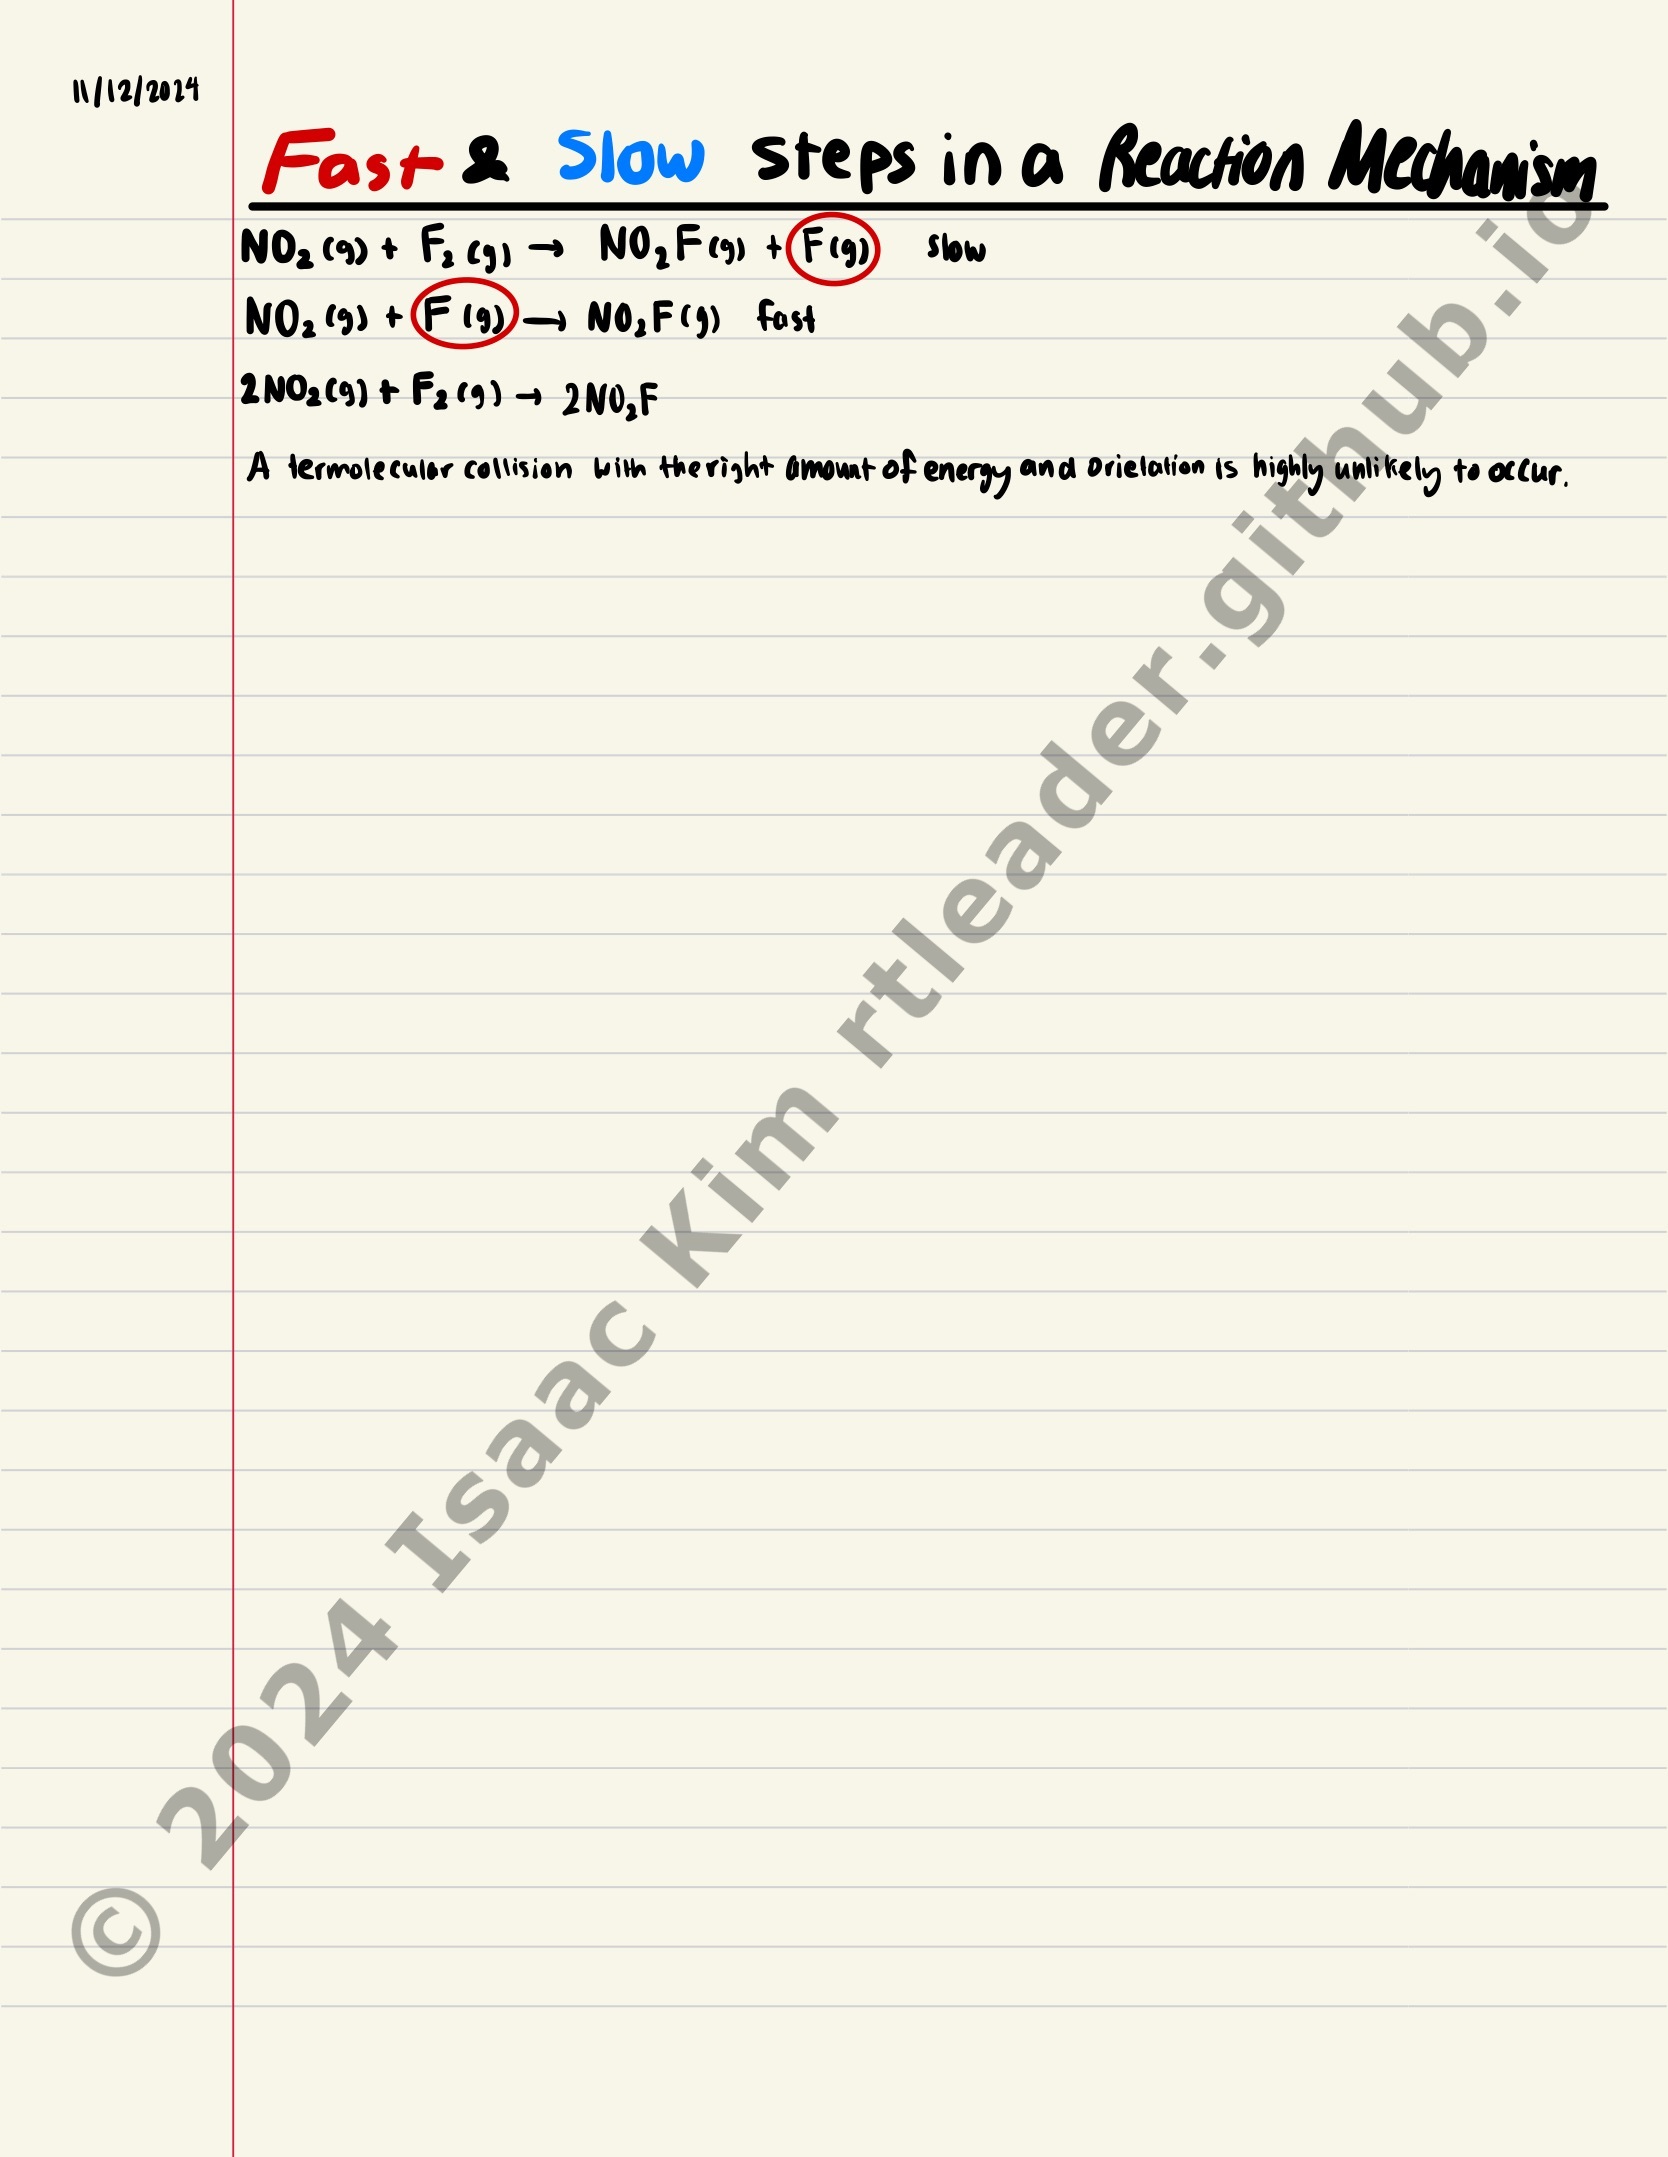 11/12/2024
Fast & Slow steps in a Reaction Mechanism
NO₂(g) + F₂(g) → NO₂F(g) + F(g) slow
NO₂(g) + F(g) → NO₂F(g) fast
2NO₂(g) + F₂(g) → 2NO₂F
A termolecular collision with the right amount of energy and orietation is highly unlikely to occur.
© 2024 Isaac Kim rtleader.github.io